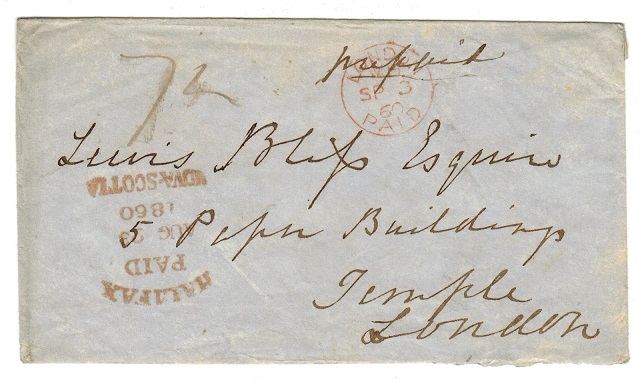 prepaid
7½
LONDON
SP 3
60
PAID
Lewis Bliſs Esquire
5 Paper Buildings
Temple
London
HALIFAX
PAID
AUG 23
1860
NOVA-SCOTIA